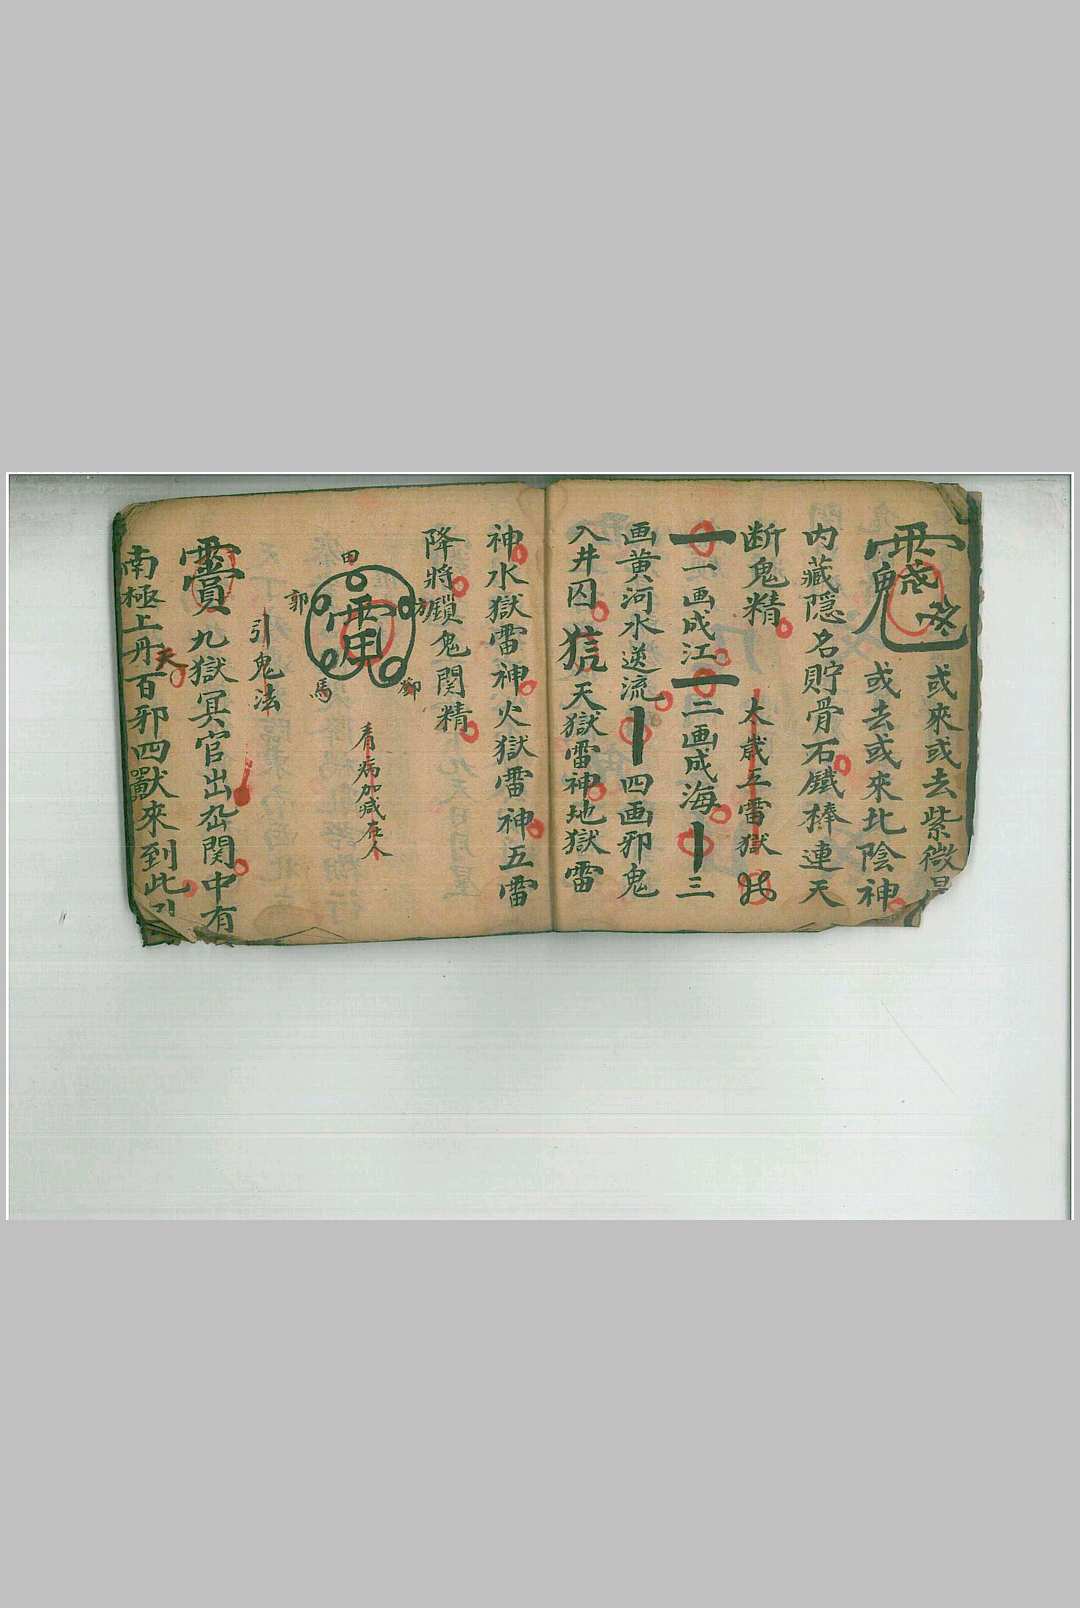 或來或去紫微
或去或來北陰神
內藏隱名貯骨石鐵棒連天
断鬼精
太歲五雷獄
一一画成江一二画成海丨三
画黄河水逆流丨四画邪鬼
入井囚 天獄雷神地獄雷
神水獄雷神火獄雷神五雷
降將鎖鬼関精
田
郭
方
馬
鄧
看病加减在人
引鬼法
九獄冥官出 関中有
南極上丹天百邪四獸來到此